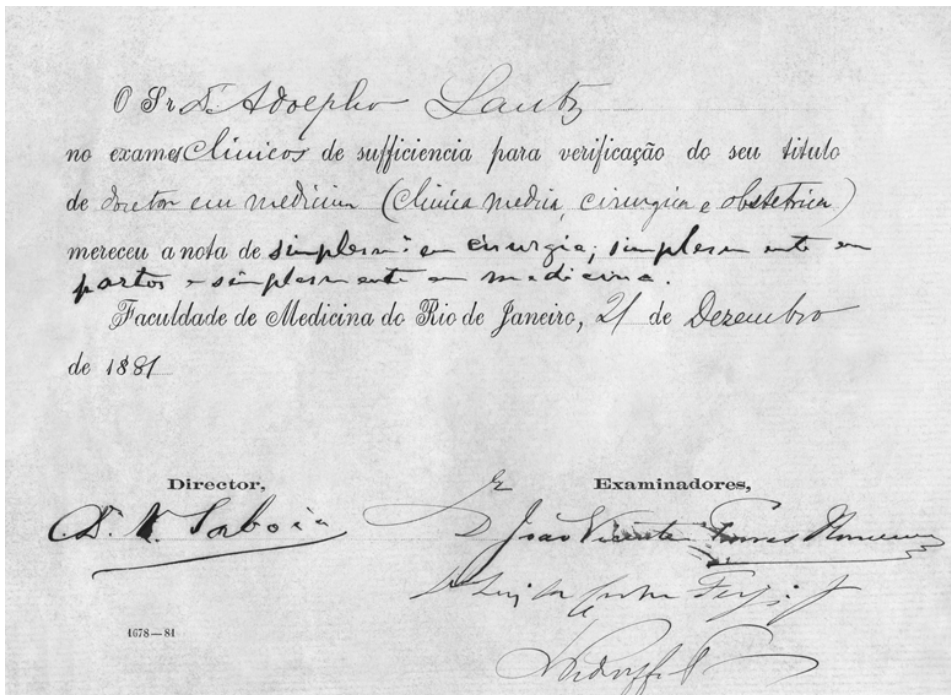 O Sr. Dr. Adolpho Lutz
no exames Clinicos de sufficiencia para verificação do seu titulo
de doutor em medicina (Clinica medica, cirurgica e obstetrica)
mereceu a nota de simplesm.te em cirurgia; simplesmente em
partos e simplesmente em medicina.
Faculdade de Medicina do Rio de Janeiro, 21 de Dezembro
de 1881
Director, Examinadores,
Dr. V. Saboia Dr. João Vicente Torres Homem
Dr. Luiz da Feijó Jr
1678—81